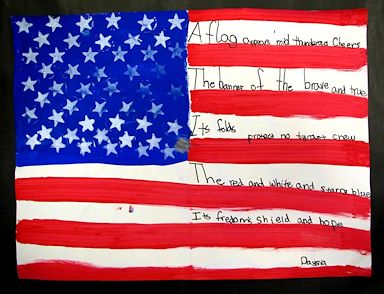 A flag appears 'mid thunderous cheers
The banner of the brave and true
Its folds protect no tyrant crew
The red and white and starry blue
Its freedom's shield and hope